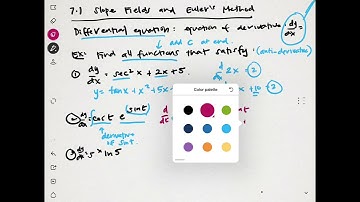 7.1 Slope Fields and Euler's Method
Differential equation: equation of derivative dy/dx =
→ add C at end
Ex: Find all functions that satisfy: (anti-derivative)
① dy/dx = sec²x + 2x + 5. d/dx 2x = 2
y = tanx + x² + 5x 2x + 10 = 2
② dy/dx = cos t e^(sin t) d/dt
↑ derivative of sin t.
③ dy/dx = 5^x ln 5
Color palette